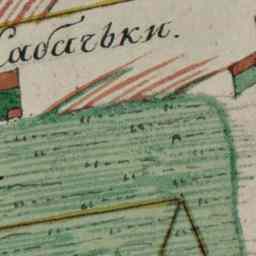 Кабачьки.